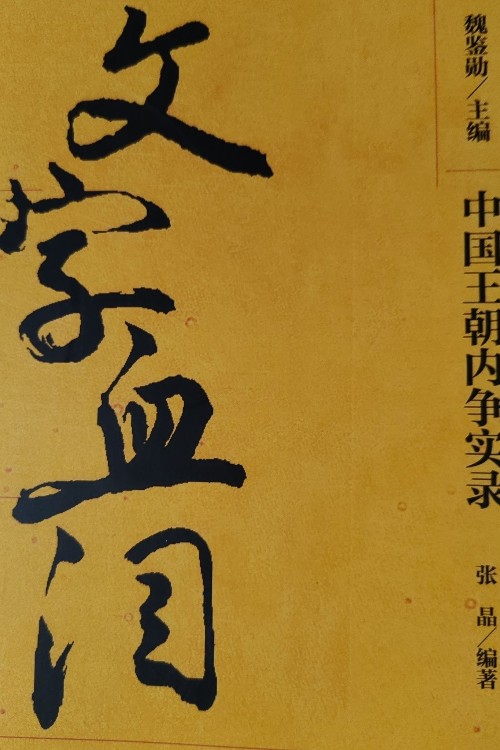 文字血泪
魏鉴勋／主编
中国王朝内争实录
张晶／编著